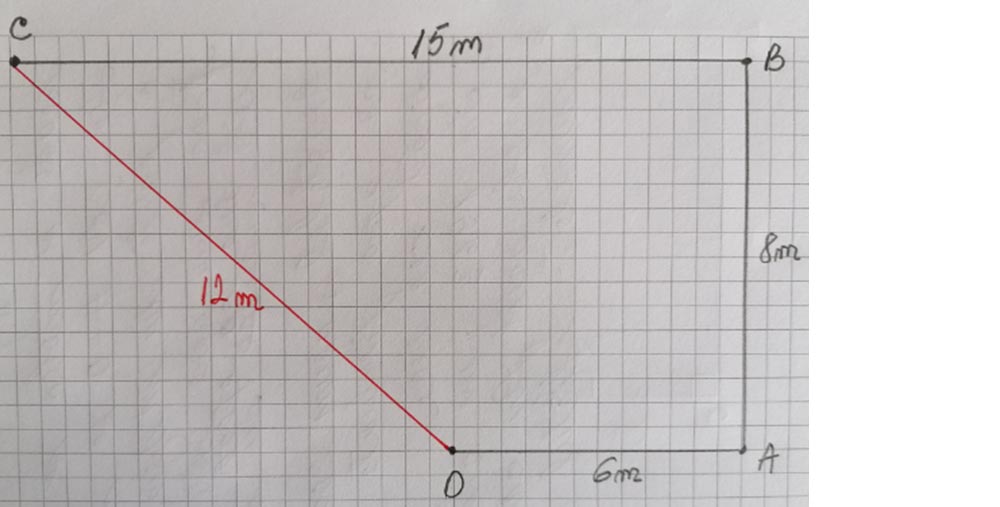 C
15m
B
8m
12m
6m
A
O